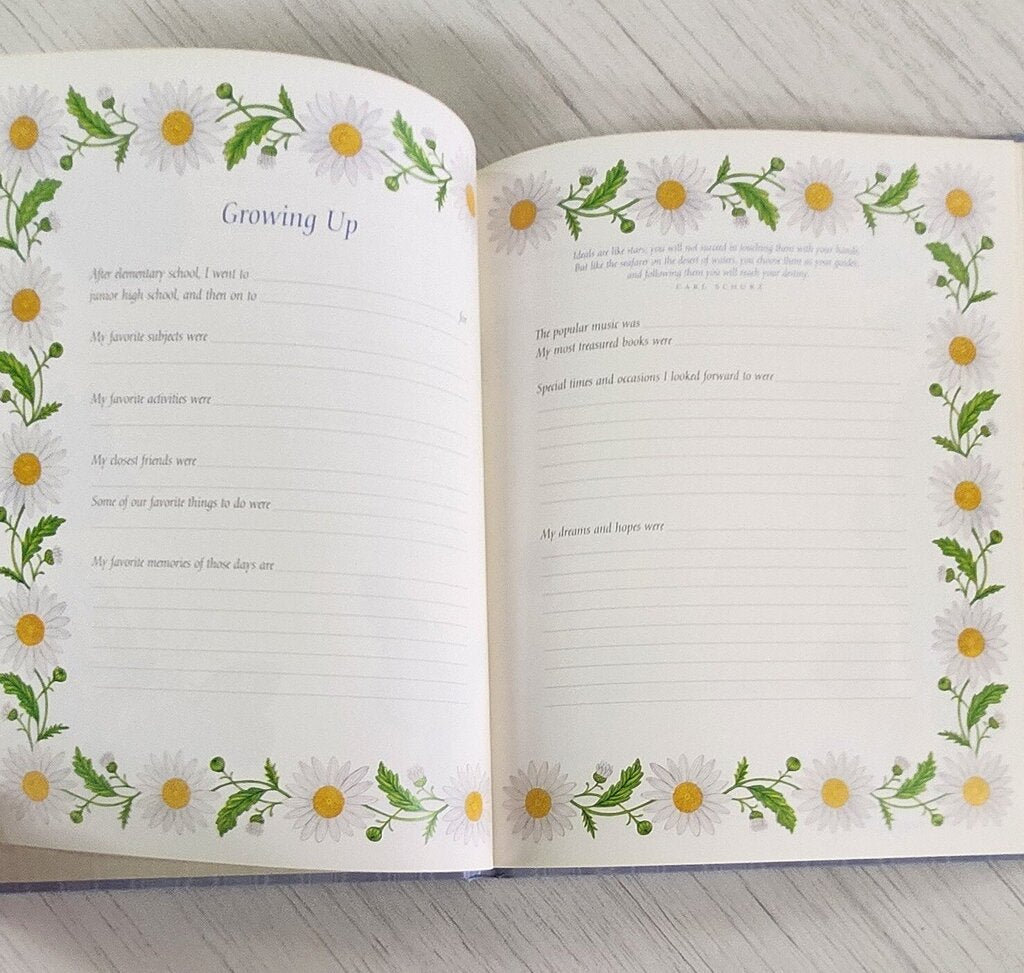 Growing Up
After elementary school, I went to
junior high school, and then on to
for
My favorite subjects were
My favorite activities were
My closest friends were
Some of our favorite things to do were
My favorite memories of those days are
Ideals are like stars; you will not succeed in touching them with your hands.
But like the seafarer on the desert of waters, you choose them as your guides,
and following them you will reach your destiny.
CARL SCHURZ
The popular music was
My most treasured books were
Special times and occasions I looked forward to were
My dreams and hopes were